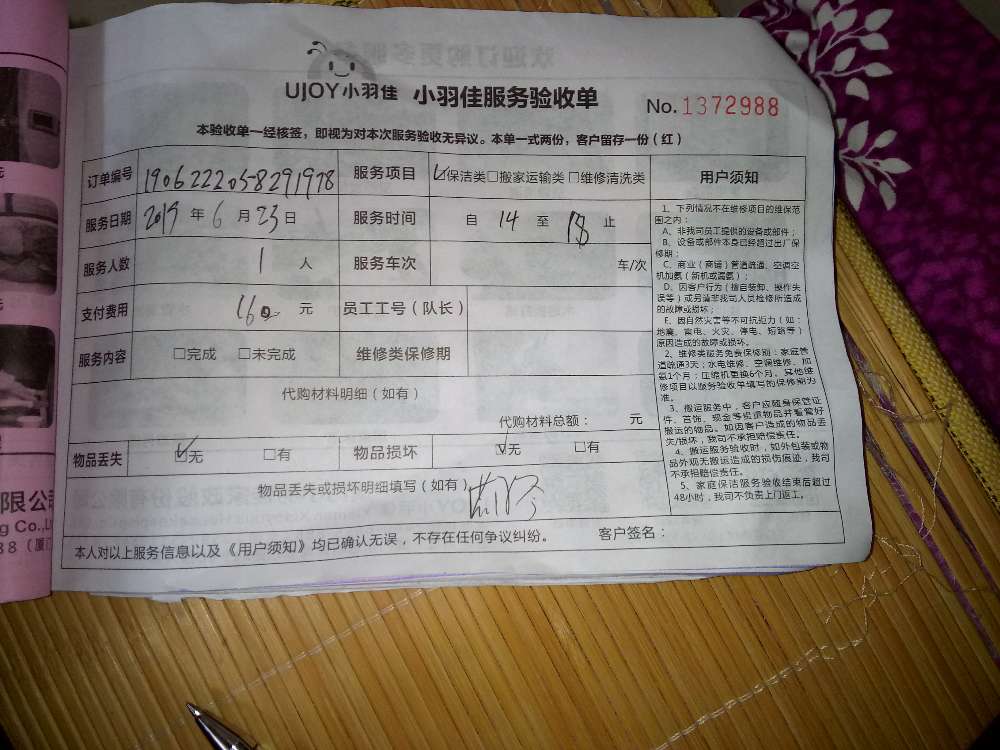 UJOY小羽佳 小羽佳服务验收单 No. 1372988
本验收单一经核签，即视为对本次服务验收无异议。本单一式两份，客户留存一份（红）
订单编号 1906222058291978 服务项目 ☑保洁类□搬家运输类□维修清洗类 用户须知
服务日期 2019 年 6 月 23 日 服务时间 自 14 至 18 止
服务人数 1 人 服务车次 车/次
支付费用 160 元 员工工号（队长）
服务内容 □完成 □未完成 维修类保修期
代购材料明细（如有）
代购材料总额： 元
物品丢失 ☑无 □有 物品损坏 ☑无 □有
物品丢失或损坏明细填写（如有）
本人对以上服务信息以及《用户须知》均已确认无误，不存在任何争议纠纷。 客户签名：
1、下列情况不在维修项目的维保范
围之内：
A、非我司员工提供的设备或部件；
B、设备或部件本身已经超过出厂保
修期；
C、商业（商铺）管道疏通、空调空
机加氨（新机或漏氨）；
D、因客户行为（擅自装卸、操作失
误等）或另请非我司人员检修所造成
的故障或损坏；
E、因自然灾害等不可抗拒力（如：
地震、雷电、火灾、停电、短路等）
原因造成的故障或损坏。
2、维修类服务免费保修期：家庭管
道疏通3天；水电维修、空调维修、加
氨1个月；压缩机更换6个月。其他维
修项目以服务验收单填写的保修期为
准。
3、搬运服务中，客户应随身保管证
件、首饰、现金等贵重物品并看管好
搬运的物品。如因客户造成的物品丢
失/损坏，我司不承担赔偿责任。
4、搬运服务验收时，如外包装或物
品外观无搬运造成的损伤痕迹，我司
不承担赔偿责任。
5、家庭保洁服务验收结束后超过
48小时，我司不负责上门返工。
限公司
g Co.,L
88（厦门